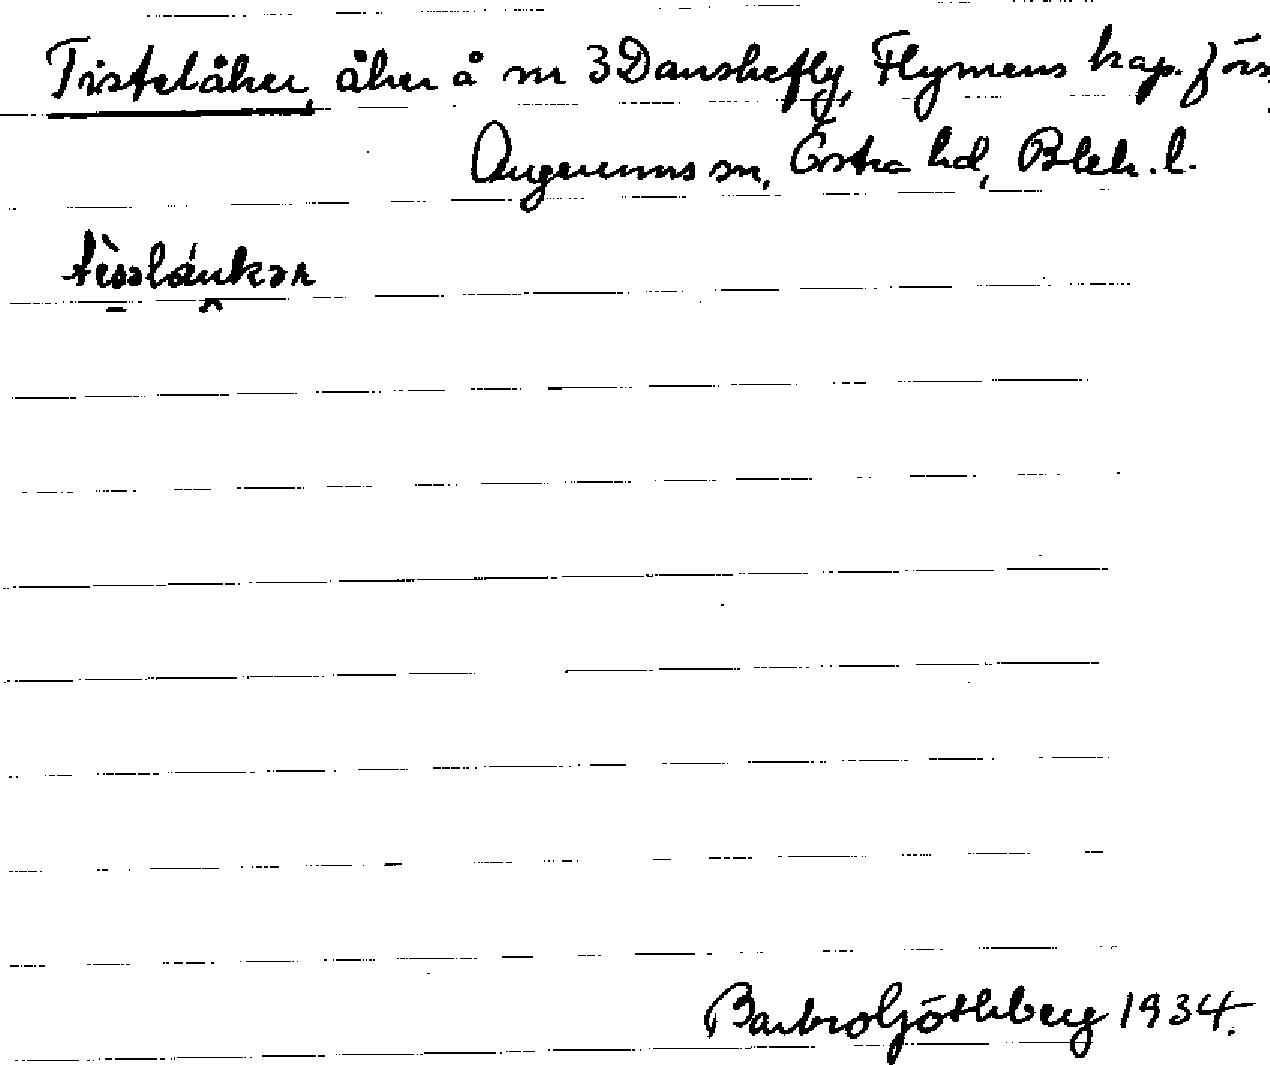 Tistelåker, åker å nr 3 Danskefly, Flymens kap. förs,
Augerums sn, Östra hd, Blek. l.
Barbro Göthberg 1934.